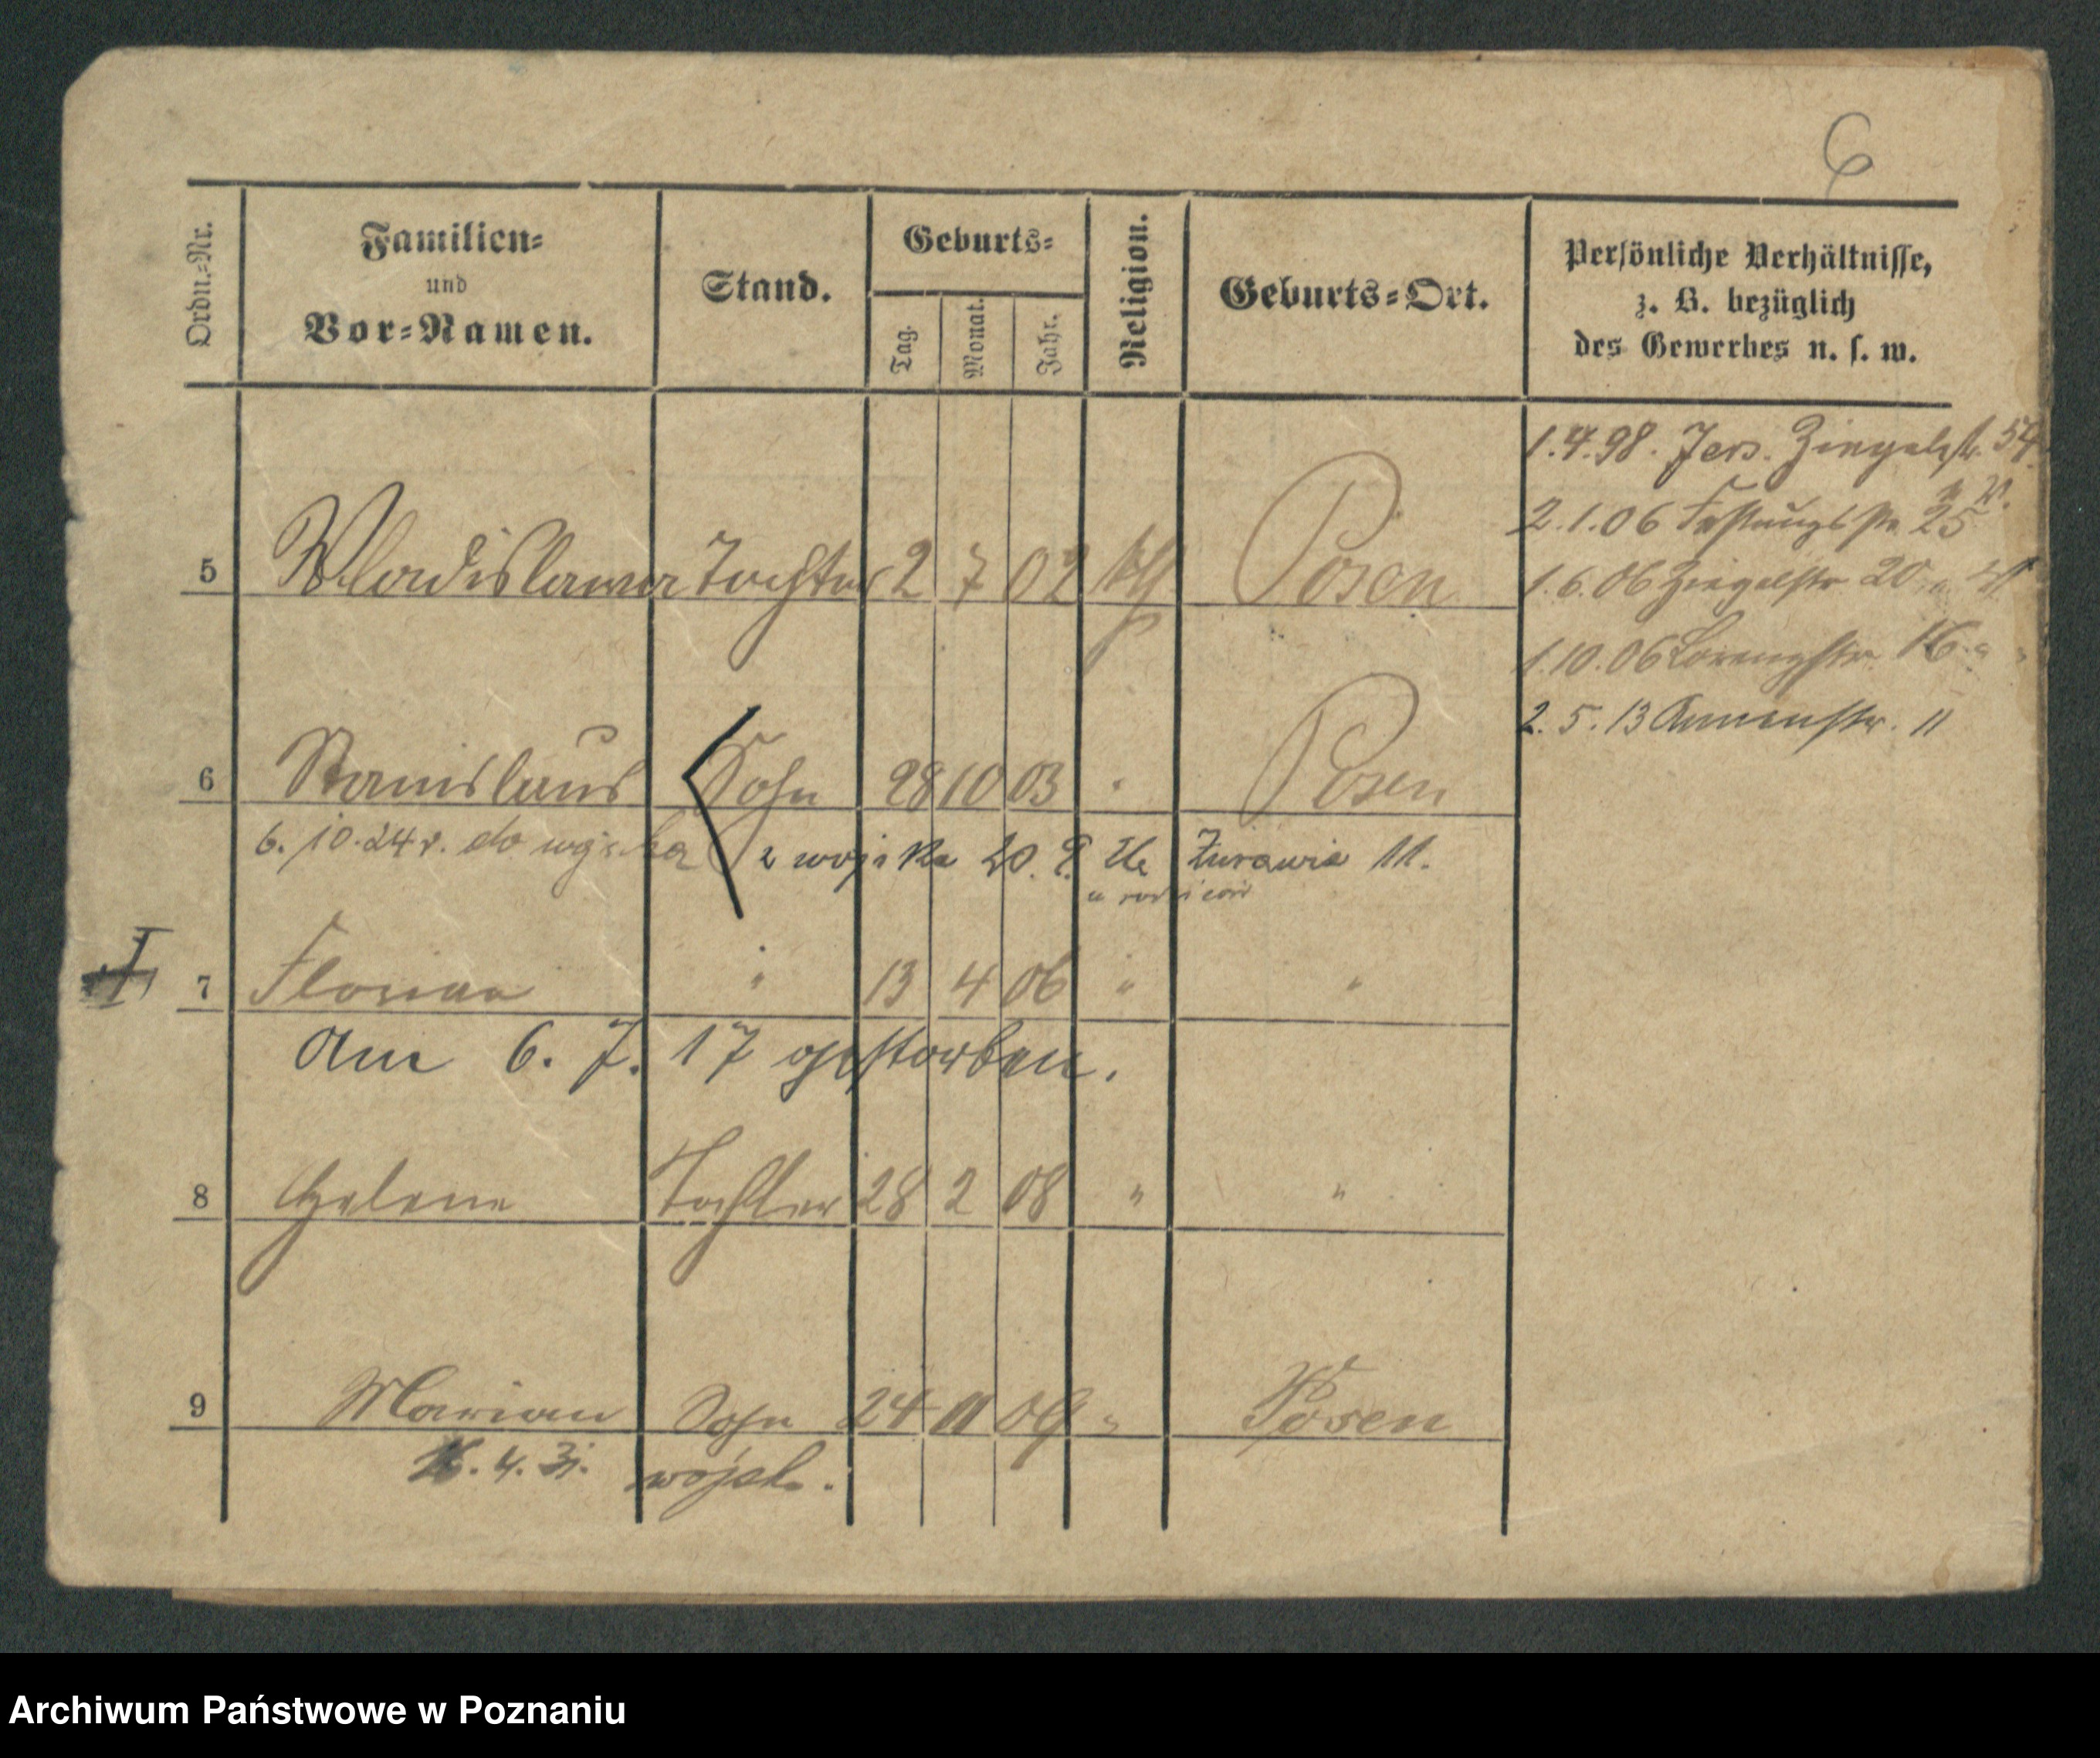 6
Ordn.-Nr. Familien- und Vor-Namen. Stand. Geburts- Tag. Monat. Jahr. Religion. Geburts-Ort. Persönliche Verhältnisse, z. B. bezüglich des Gewerbes u. s. w.
1.4.98. Jers. Ziegelstr. 54
2.1.06 Festungsstr. 25
5 Wladislawa Tochter 2 7 02 kth Posen
1.6.06 Ziegelstr 20
1.10.06 Lorenzstr. 16
2.5.13 Annenstr. 11
6 Stanislaus Sohn 28 10 03 " Posen
6. 10. 24 r. do wojska z wojska 20. Żurawia 11.
u rodziców
7 Florian " 13 4 06 " "
Am 6. 7. 17 gestorben.
8 Helene Tochter 28 2 08 " "
9 Marian Sohn 24 11 09 " Posen
4. 31. wojsk.
Archiwum Państwowe w Poznaniu